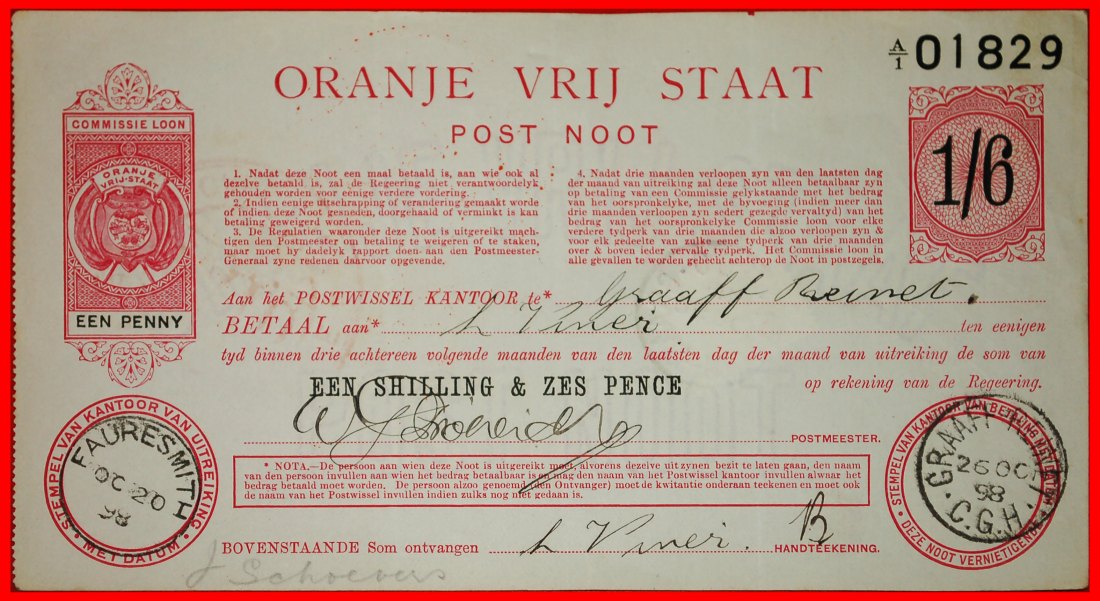 A/1 01829
ORANJE VRIJ STAAT
POST NOOT
COMMISSIE LOON
ORANJE
VRIJ-STAAT
EEN PENNY
1/6
1. Nadat deze Noot een maal betaald is, aan wie ook al
dezelve betaald is, zal de Regeering niet verantwoordelyk
gehouden worden voor eenige verdere vordering.
2. Indien eenige uitschrapping of verandering gemaakt worde
of indien deze Noot gesneden, doorgehaald of verminkt is kan
betaling geweigerd worden.
3. De Regulatien waaronder deze Noot is uitgereikt mach-
tigen den Postmeester om betaling te weigeren of te staken,
maar moet hy dadelyk rapport doen aan den Postmeester-
Generaal zyne redenen daarvoor opgevende.
4. Nadat drie maanden verloopen zyn van den laatsten dag
der maand van uitreiking zal deze Noot alleen betaalbaar zyn
op betaling van een Commissie gelykstaande met het bedrag
van het oorspronkelyke, met de byvoeging (indien meer dan
drie maanden verloopen zyn sedert gezegde vervaltyd) van het
bedrag van het oorspronkelyke Commissie loon voor elke
verdere tydperk van drie maanden die alzoo verloopen zyn &
voor elk gedeelte van zulke eene tydperk van drie maanden
over & boven ieder vervalle tydperk. Het Commissie loon in
alle gevallen te worden gehecht achterop de Noot in postzegels.
Aan het POSTWISSEL KANTOOR te* Graaff Reinet.
BETAAL aan* h Viner ten eenigen
tyd binnen drie achtereen volgende maanden van den laatsten dag der maand van uitreiking de som van
EEN SHILLING & ZES PENCE op rekening van de Regeering.
POSTMEESTER.
* NOTA.—De persoon aan wien deze Noot is uitgereikt moet, alvorens dezelve uit zynen bezit te laten gaan, den naam
van den persoon invullen aan wien het bedrag betaalbaar is en mag den naam van het Postwissel kantoor invullen alwaar het
bedrag betaald moet worden. De persoon alzoo genoemd (den Ontvanger) moet de kwitantie onderaan teekenen en moet ook
de naam van het Postwissel invullen indien zulks nog niet gedaan is.
BOVENSTAANDE Som ontvangen h Viner. B HANDTEEKENING.
STEMPEL VAN KANTOOR VAN UITREIKING
MET DATUM
FAURESMITH
OC 20
98
STEMPEL VAN KANTOOR VAN BETALING MET DATUM
DEZE NOOT VERNIETIGENDE
GRAAFF
26 OCT
98
C.G.H.
J Schoevers